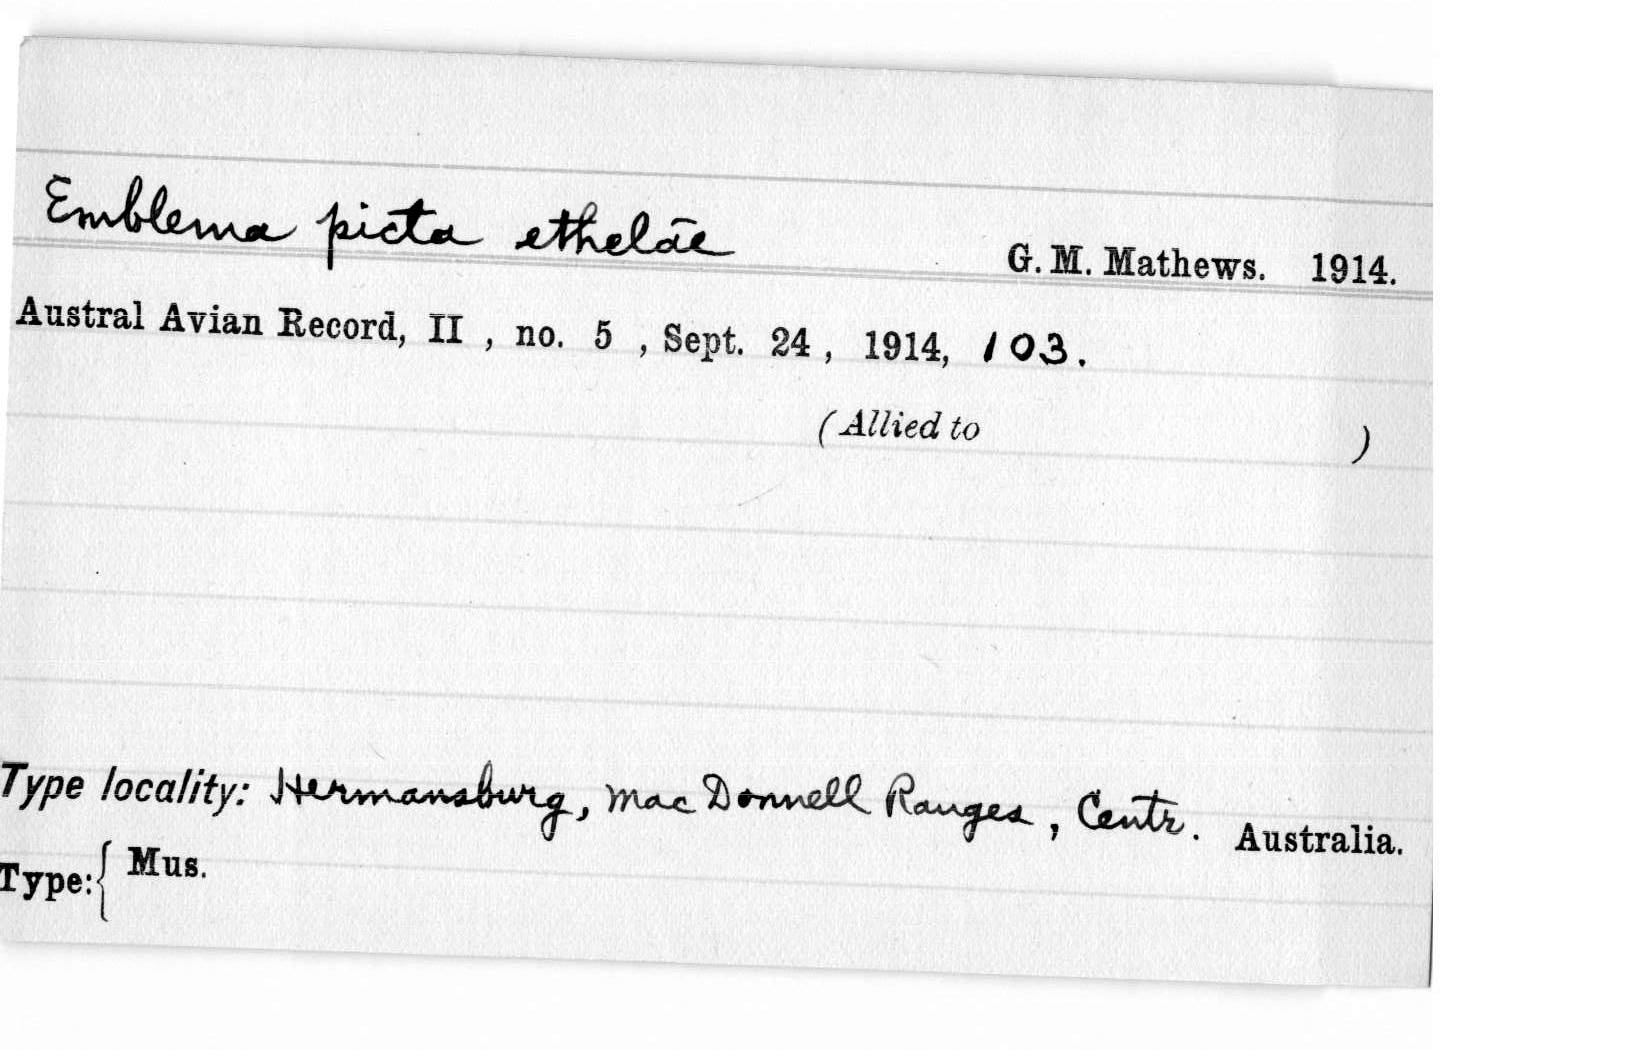 Emblema picta ethelae G. M. Mathews. 1914.
Austral Avian Record, II , no. 5 , Sept. 24 , 1914, 103.
(Allied to )
Type locality: Hermansburg, MacDonnell Ranges, Centr. Australia.
Type: { Mus.